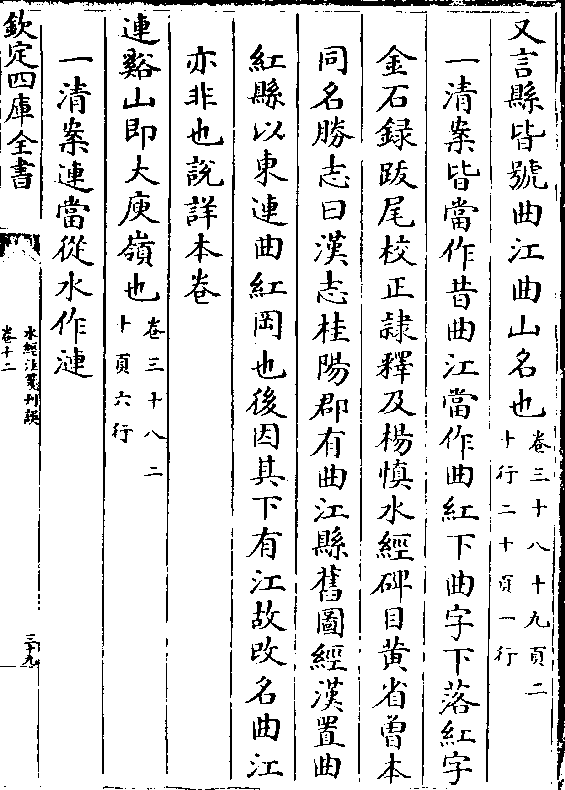 又言縣皆號曲江曲山名也卷三十八十九頁二
十行二十頁一行
一清案皆當作昔曲江當作曲紅下曲字下落紅字
金石録跋尾校正隷釋及楊慎水經碑目黄省曾本
同名勝志曰漢志桂陽郡有曲江縣舊圖經漢置曲
紅縣以東連曲紅岡也後因其下有江故改名曲江
亦非也說詳本卷
連谿山即大庾嶺也卷三十八二
十頁六行
一清案連當從水作漣
欽定四庫全書
水經注箋刊誤
卷十二
三十九